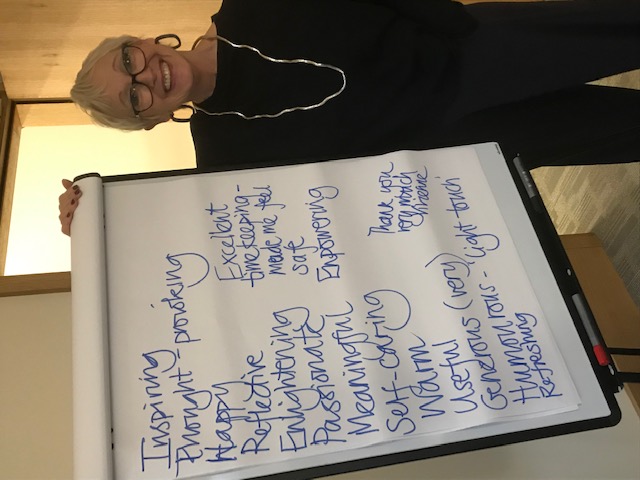 Inspiring
Thought-provoking
Happy
Reflective
Enlightening
Passionate
Meaningful
Self-caring
Warm
Useful (very)
Generous
Humourous - light touch
Refreshing
Excellent
timekeeping -
made me feel
safe
Empowering
Thank you
very much